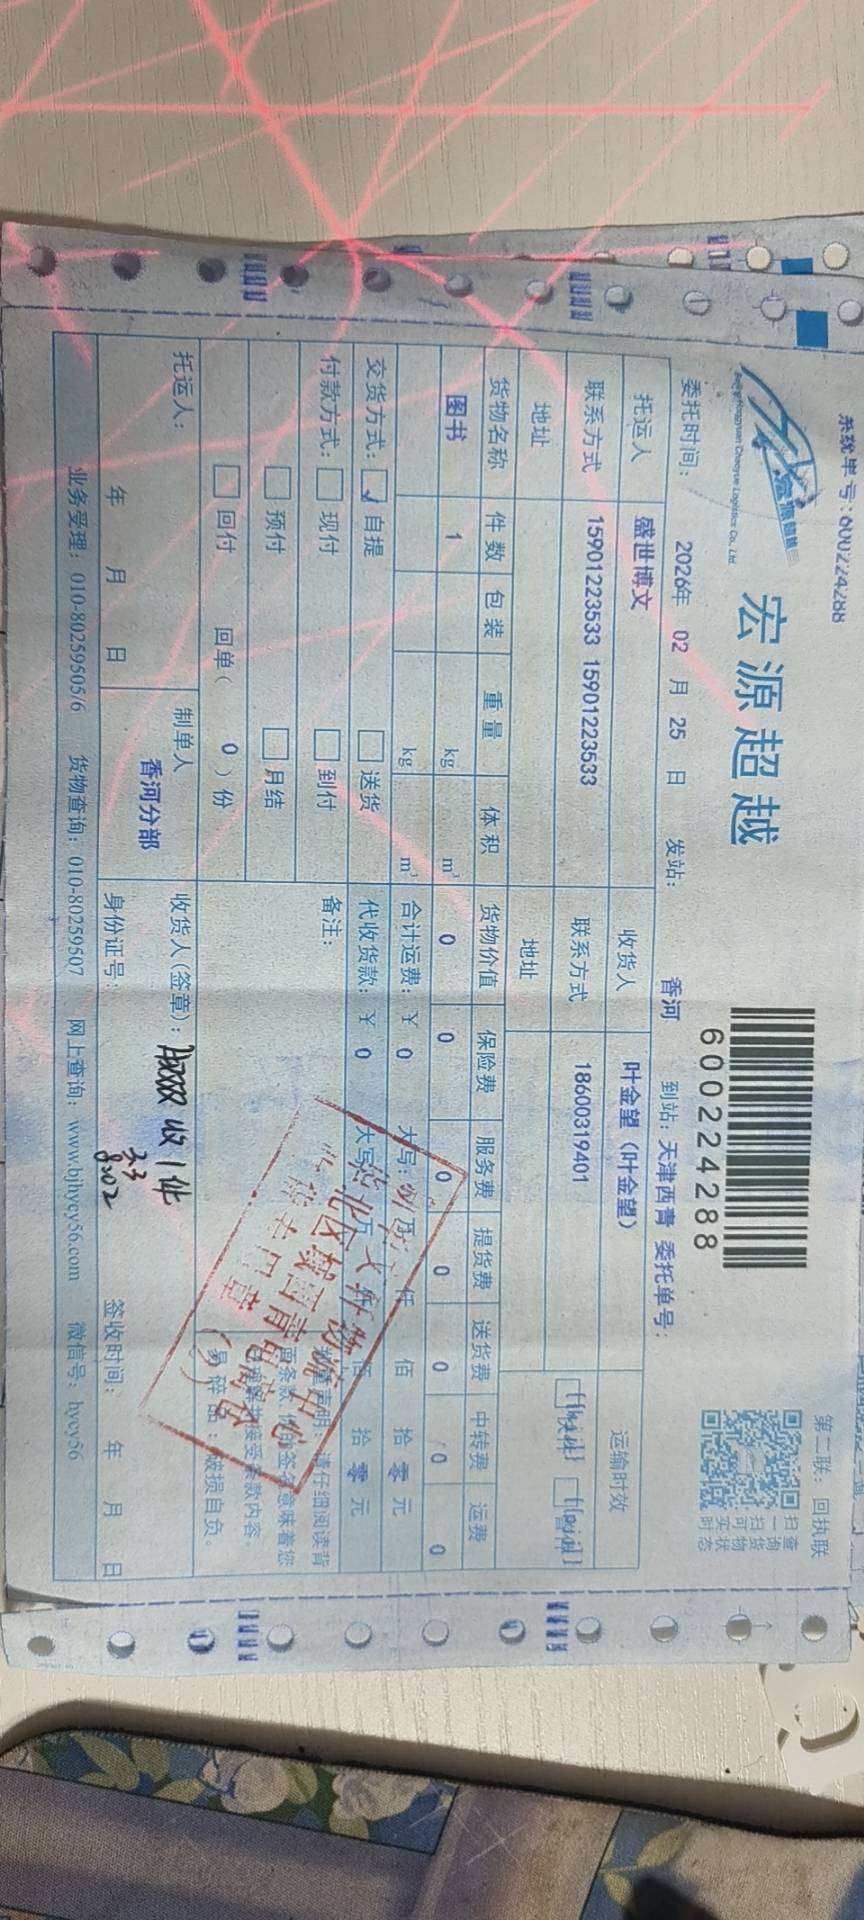 系统单号:600224288
第二联：回执联
宏源超越
Beijing Hongyuan Chaoyue Logistics Co., Ltd
600224288
扫一扫可实时
查询货物状态
委托时间: 2026年 02 月 25 日 发站: 香河 到站: 天津西青 委托单号:
托运人 盛世博文 收货人 叶金望 (叶金望) 运输时效
联系方式 15901223533 15901223533 联系方式 18600319401
地址 地址
货物名称 件数 包装 重量 体积 货物价值 保险费 服务费 提货费 送货费 中转费 运费
图书 1 kg m³ 0 0 0 0 0 0 0
kg m³ 合计运费: ￥ 0 大写: 万 仟 佰 拾 零 元
交货方式: 自提 送货 代收货款: ￥ 0 大写: 万 仟 佰 拾 零 元
付款方式: 现付 到付 备注:
预付 月结
回付 回单( 0 )份
请仔细阅读背
面条款 您的签名意味着您
已理解并接受条款内容。
易碎品: 破损自负。
托运人: 制单人 收货人(签章): 收1件
香河分部
年 月 日 身份证号: 签收时间: 年 月 日
业务受理: 010-80259505/6 货物查询: 010-80259507 网上查询: www.bjhycy56.com 微信号: hycy56